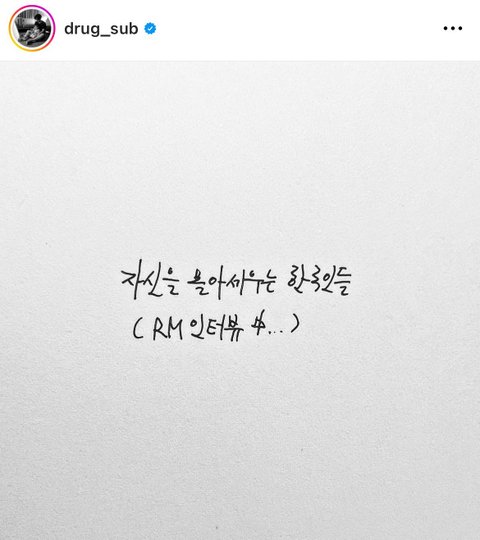 drug_sub
자신을 몰아세우는 한국인들
(RM 인터뷰 中...)